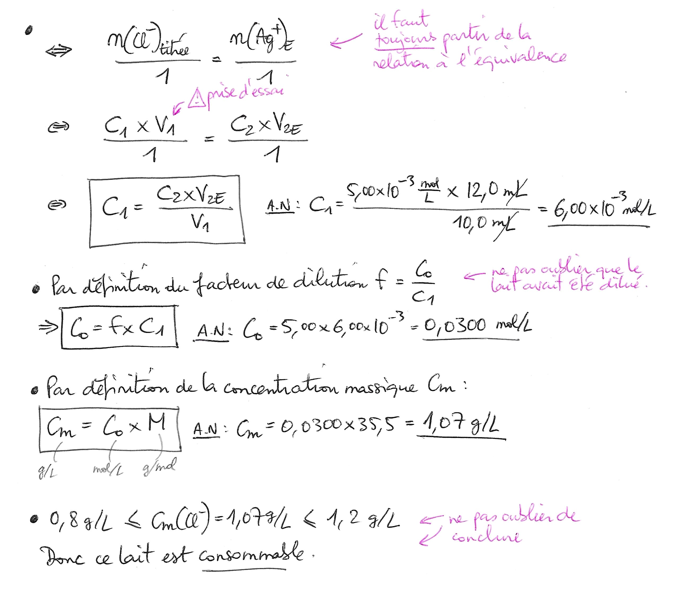 • ⇔ n(Cl⁻)titrée / 1 = n(Ag⁺)E / 1 ← il faut
toujours partir de la
relation à l'équivalence
⚠ prise d'essai
⇔ C1 × V1 / 1 = C2 × V2E / 1
⇔ C1 = C2 × V2E / V1 A.N : C1 = 5,00×10⁻³ mol/L × 12,0 mL / 10,0 mL = 6,00×10⁻³ mol/L
• Par définition du facteur de dilution f = C0 / C1 ← ne pas oublier que le
lait avait été dilué.
⇒ C0 = f × C1 A.N : C0 = 5,00 × 6,00×10⁻³ = 0,0300 mol/L
• Par définition de la concentration massique Cm :
Cm = C0 × M A.N : Cm = 0,0300 × 35,5 = 1,07 g/L
g/L mol/L g/mol
• 0,8 g/L ⩽ Cm(Cl⁻) = 1,07 g/L ⩽ 1,2 g/L ← ne pas oublier de
conclure
Donc ce lait est consommable.